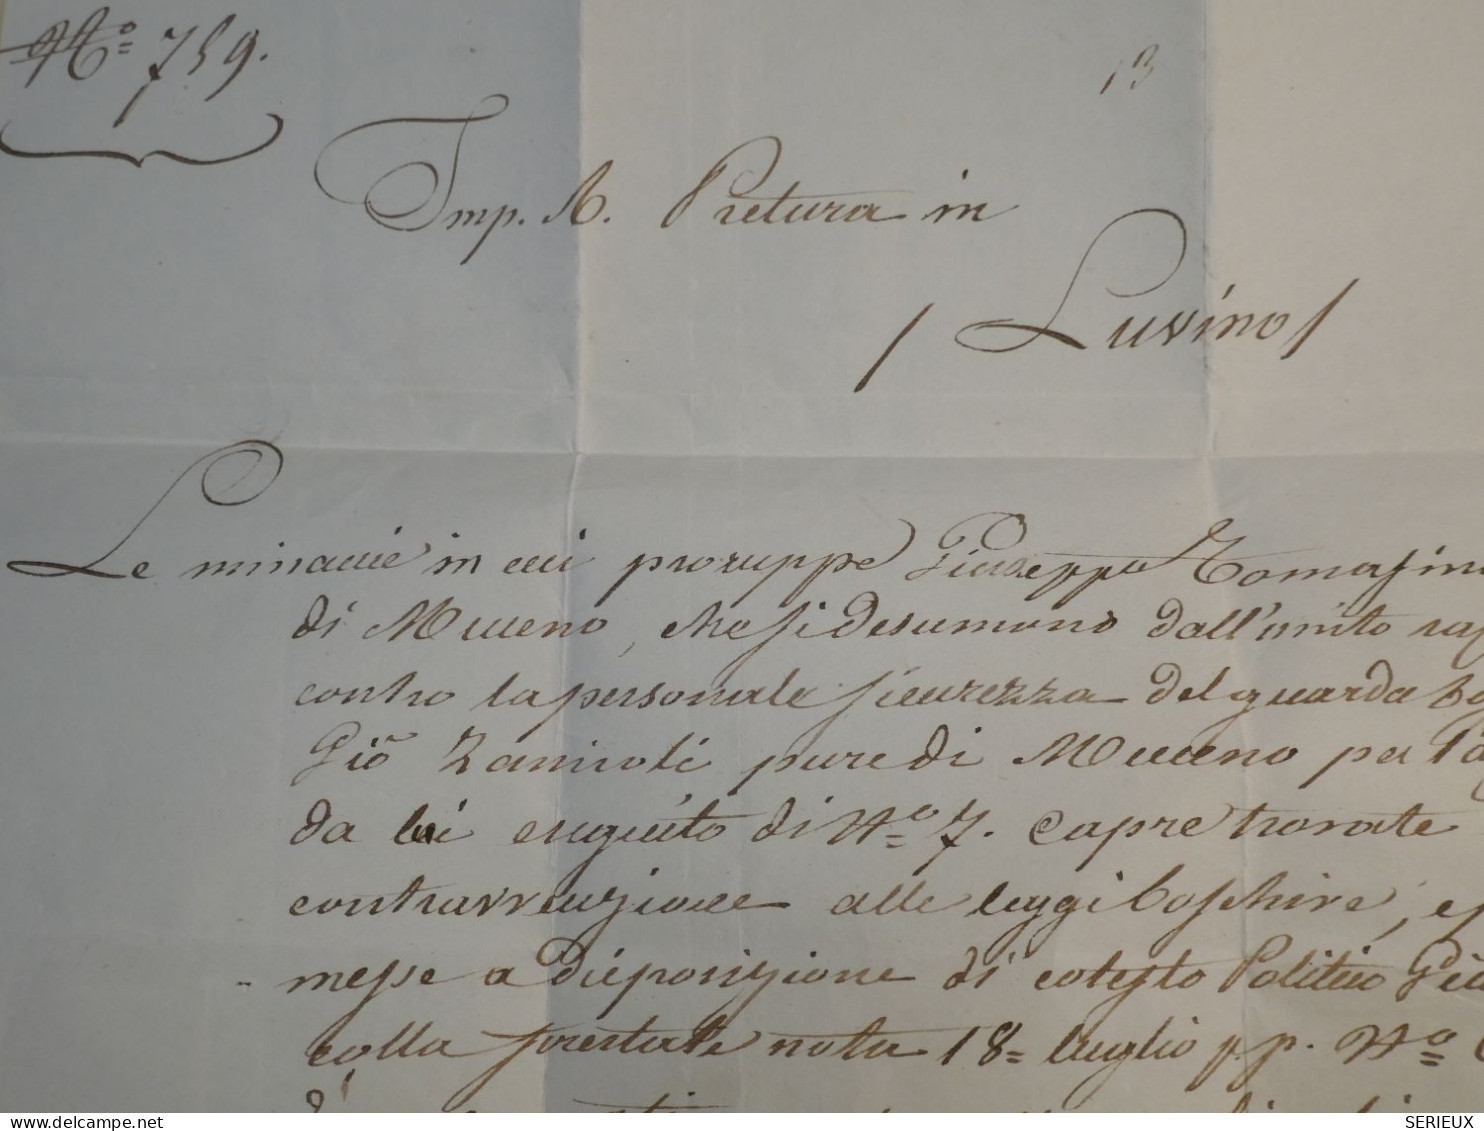 N.o 759.
13
Imp. R. Pretura in
/ Luvino /
Le minaccie in cui proruppe Giuseppe Tomasin
di Mucceno, che si desumono dall'unito
contro la personale sicurezza del guarda
Gio Zaniroli pure di Mucceno per
da lui eseguito di N.o 7. Capre trovate
contravvenzione alle leggi boschive, e
messe a disposizione di cotesto Politico
colla forestale nota 18= luglio p.p. N.o
SERIEUX